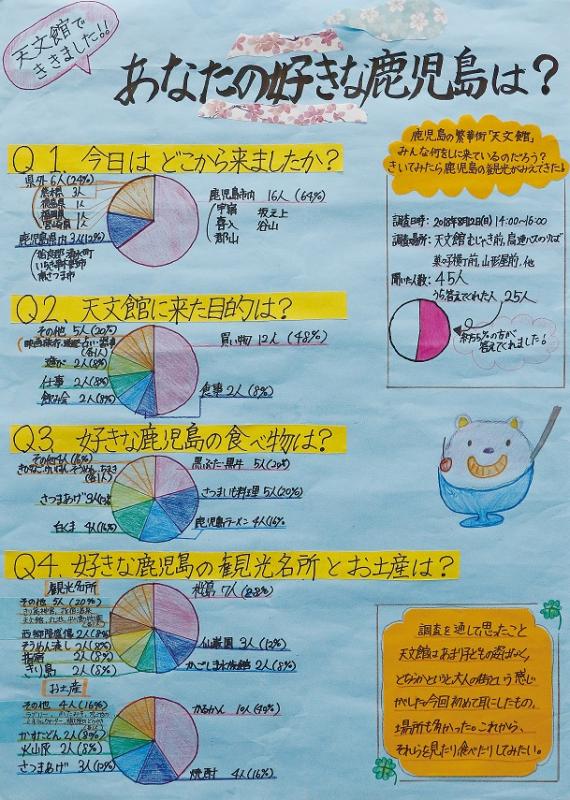 天文館で
ききました!!
あなたの好きな鹿児島は？
鹿児島の繁華街「天文館」
みんな何をしに来ているのだろう？
きいてみたら鹿児島の観光がみえてきた!
調査日時：2018年8月12日(日)14:00~16:00
調査場所：天文館むじゃき前、高速バスのりば
菓々横丁前、山形屋前、他
聞いた人数：45人
うち答えてくれた人 25人
約55%の方が
答えてくれました!
Q1 今日はどこから来ましたか？
県外 6人(24%)
3人
福岡県 1人
宮崎県 1人
鹿児島県内 3人(12%)
いちき串木野市
南さつま市
鹿児島市内 16人(64%)
宇宿 坂之上
喜入 谷山
郡山
Q2、天文館に来た目的は？
その他 5人(20%)
(各1人)
遊び 2人(8%)
仕事 2人(8%)
飲み会 2人(8%)
買い物 12人(48%)
食事 2人(8%)
Q3 好きな鹿児島の食べ物は？
その他 4人(16%)
(各1人)
さつまあげ 3人(12%)
白くま 4人(16%)
黒ぶた・黒牛 5人(20%)
さつまいも料理 5人(20%)
鹿児島ラーメン 4人(16%)
Q4、好きな鹿児島の観光名所とお土産は？
観光名所
その他 5人(20%)
西郷隆盛像 2人(8%)
そうめん流し 2人(8%)
指宿 2人(8%)
きり島 2人(8%)
桜島 7人(28%)
仙巌園 3人(12%)
かごしま水族館 2人(8%)
お土産
その他 4人(16%)
かすたどん 2人(8%)
火山灰 2人(8%)
さつまあげ 3人(12%)
かるかん 10人(40%)
焼酎 4人(16%)
調査を通して思ったこと
天文館はあまり子どもの姿はなく、
どちらかというと大人の街という感じ
がした。今回初めて耳にしたもの、
場所も多かった。これから、
それらを見たり食べたりしてみたい。